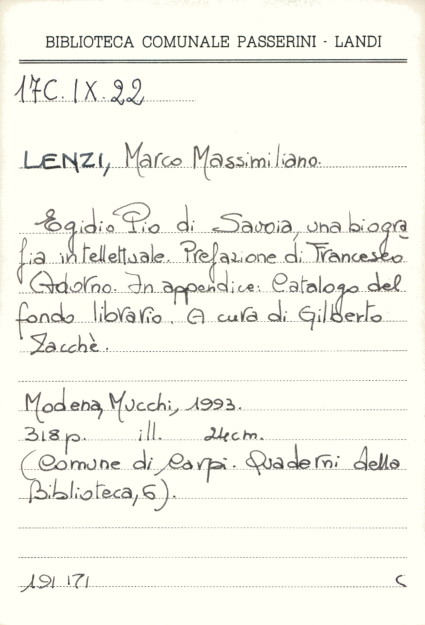 BIBLIOTECA COMUNALE PASSERINI - LANDI
17C. IX. 22
LENZI, Marco Massimiliano.
Egidio Pio di Savoia, una biogra
fia intellettuale. Prefazione di Francesco
Adorno. In appendice: Catalogo del
fondo librario. A cura di Gilberto
Zacchè.
Modena, Mucchi, 1993.
318 p. ill. 24 cm.
(Comune di Carpi. Quaderni della
Biblioteca, 6).
191 171 C